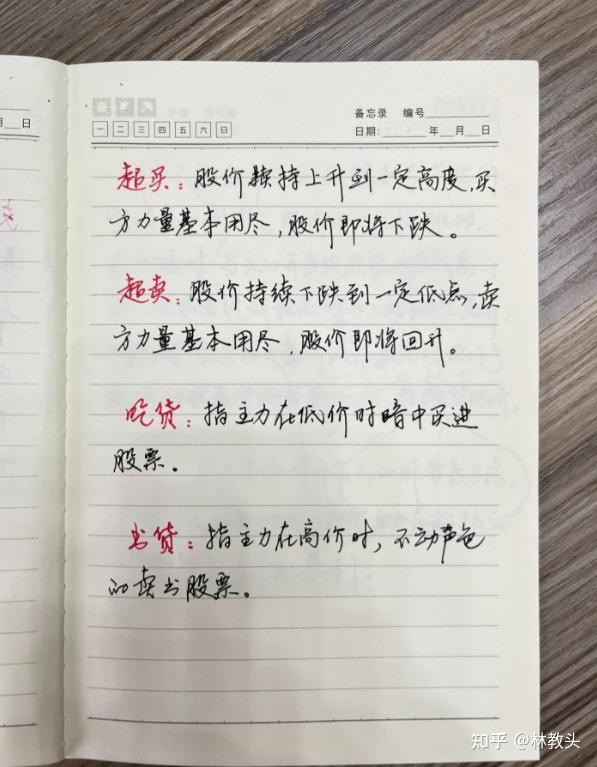 备忘录 编号
一 二 三 四 五 六 日
日期: 年 月 日
月 日
超买：股价持续上升到一定高度,买
方力量基本用尽,股价即将下跌。
超卖：股价持续下跌到一定低点,卖
方力量基本用尽,股价即将回升。
吃货：指主力在低价时暗中买进
股票。
出货：指主力在高价时,不动声色
的卖出股票。
知乎 @林教头